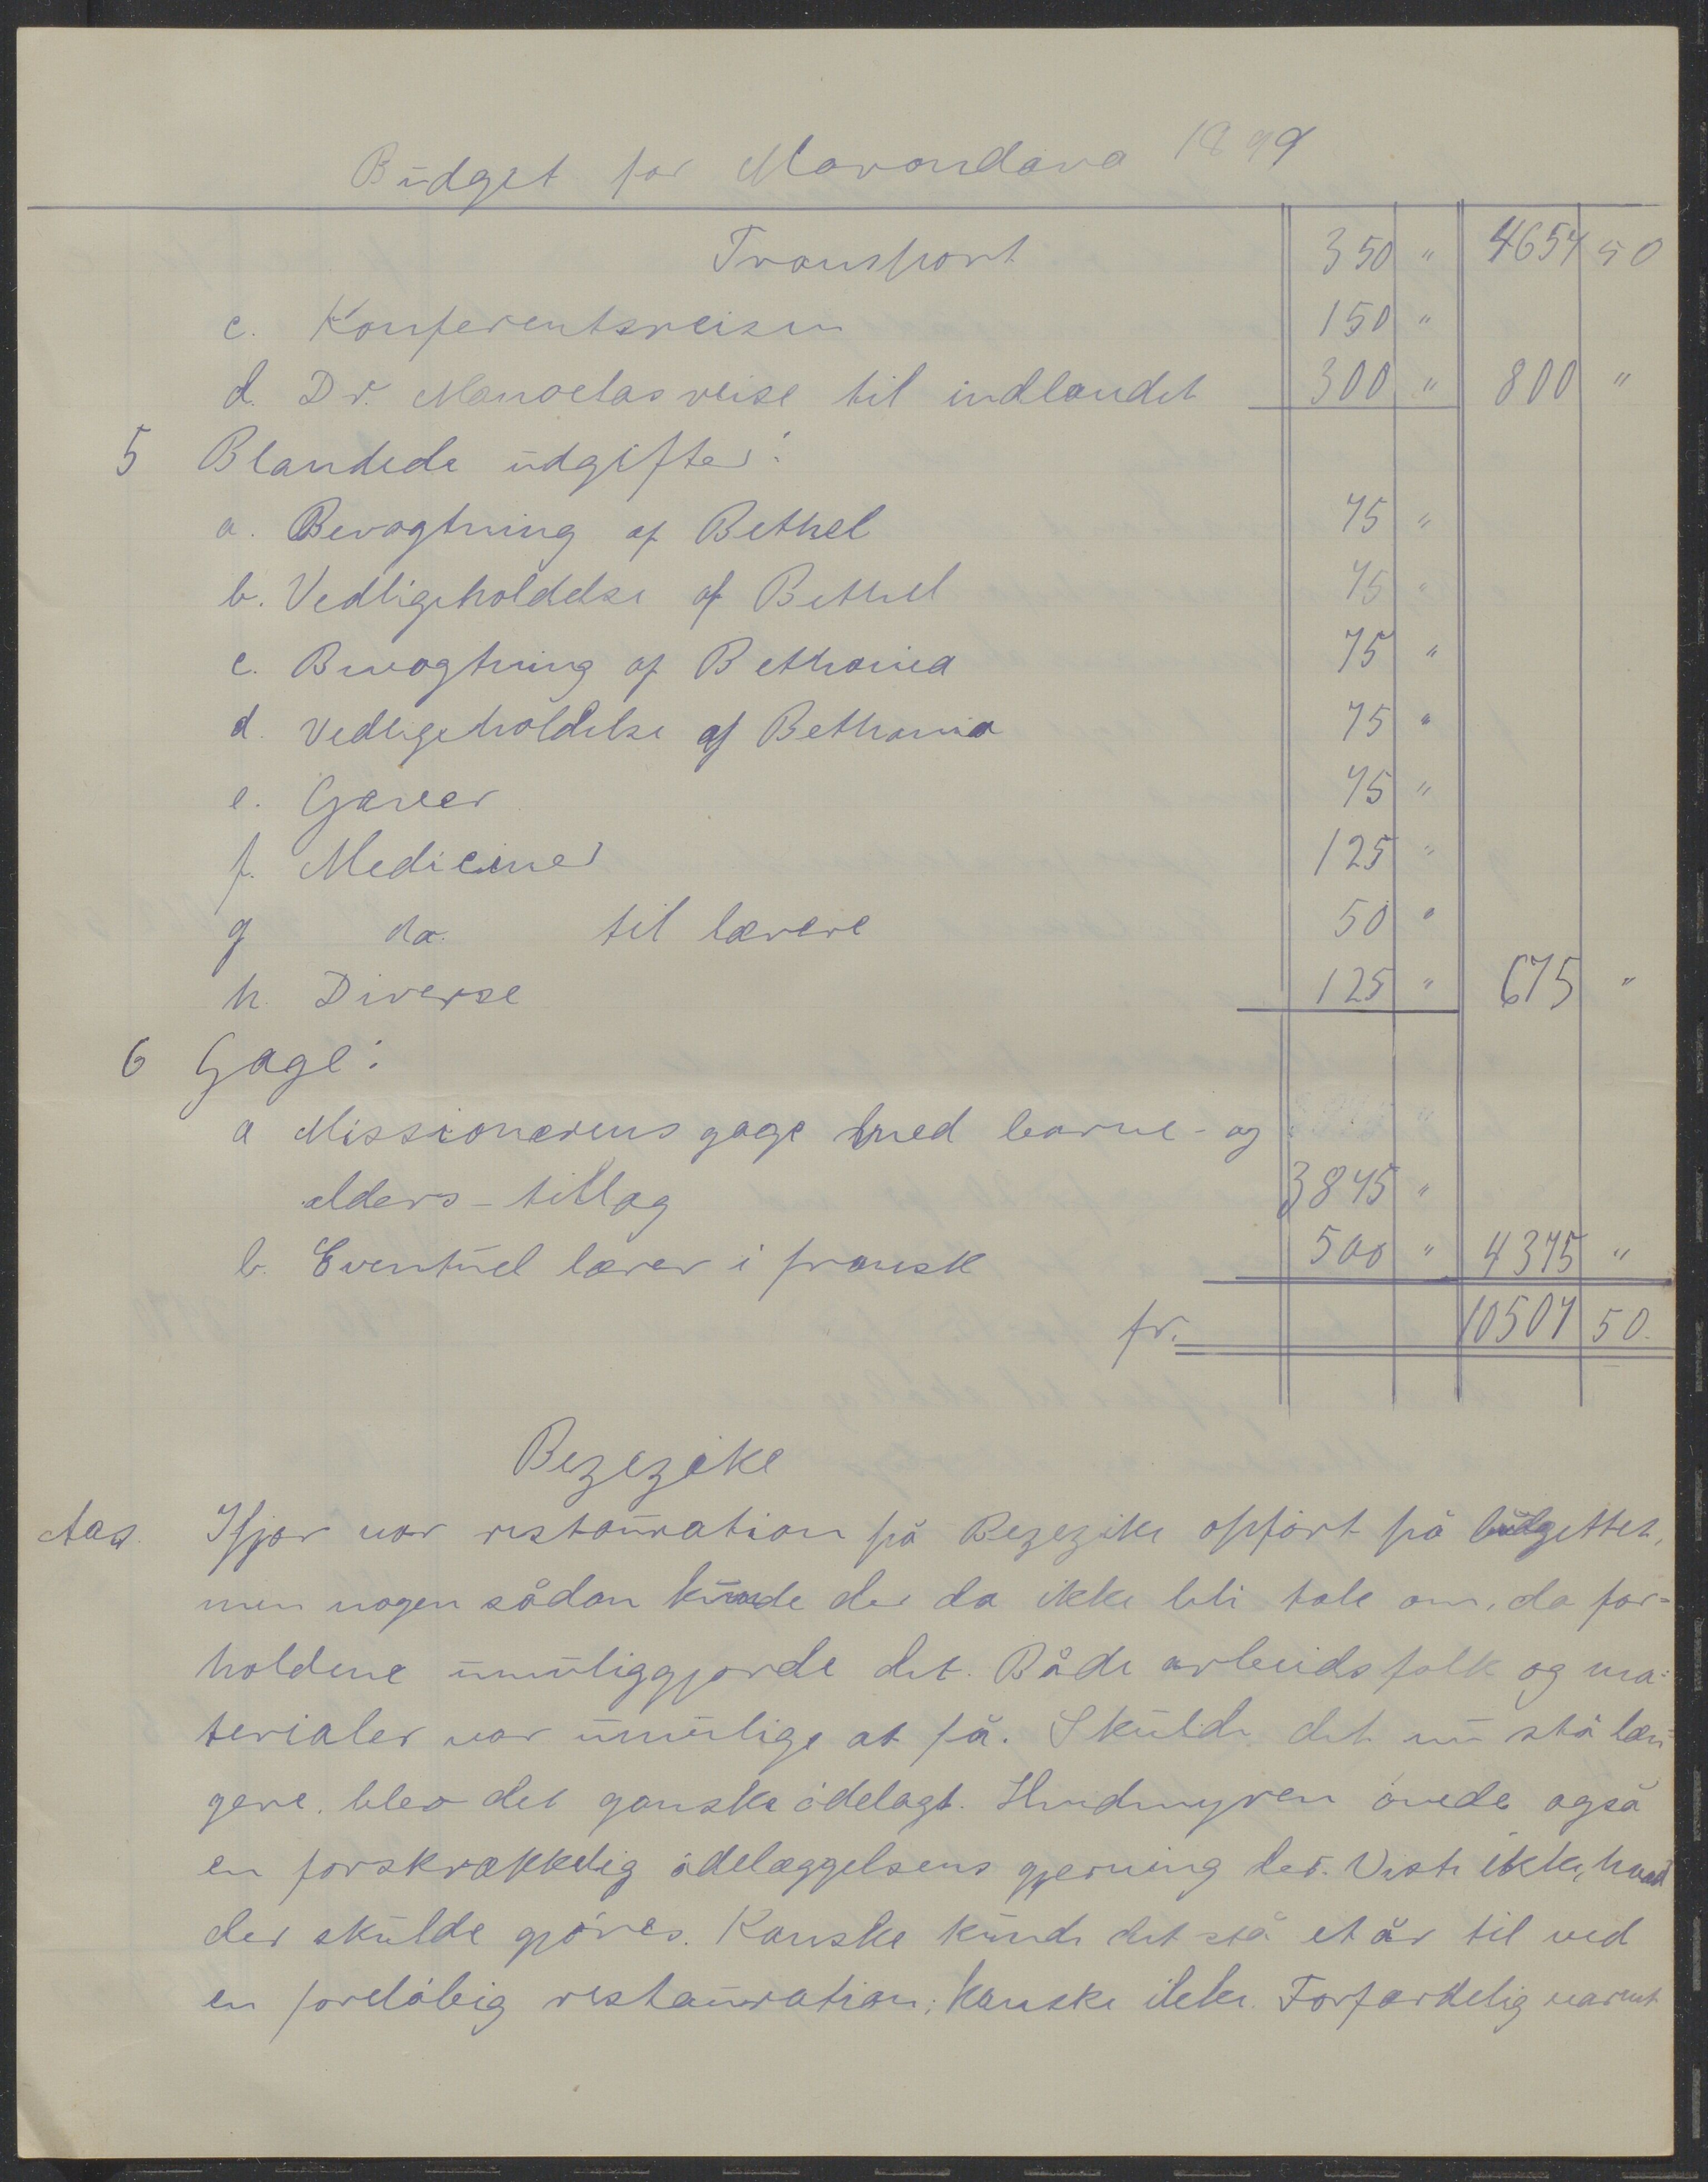 Budget for Morondava 1899
Transport 350 " 4657 50
c. Konferentsreisen 150 "
d. Dr. Manoelas reise til indlandet 300 " 800 "
5 Blandede udgifter:
a. Bevogtning af Bethel 75 "
b. Vedligeholdelse af Bethel 75 "
c. Bevogtning af Bethania 75 "
d. Vedligeholdelse af Bethania 75 "
e. Gaver 75 "
f. Mediciner 125 "
g do. til lærere 50 "
h. Diverse 125 " 675 "
6 Gage:
a Missionærens gage med barne- og
alders-tillæg 3875 "
b. Eventuel lærer i fransk 500 " 4375 "
fr. 10507 50.
Bezezike
Aas. Ifjor var restauration på Bezezike opført på budgettet,
men nogen sådan kunde der da ikke bli tale om, da for-
holdene umuliggjorde det. Både arbeidsfolk og ma-
terialer var umulige at få. Skulde det nu stå læn-
gere, blev det ganske ødelagt. Hvidmyren øvede også
en forskrækkelig ødelæggelsens gjerning der. Viste ikke, hvad
der skulde gjøres. Kanske kunde det stå et år til ved
en foreløbig restauration; kanske ikke. Forfærdelig varmt